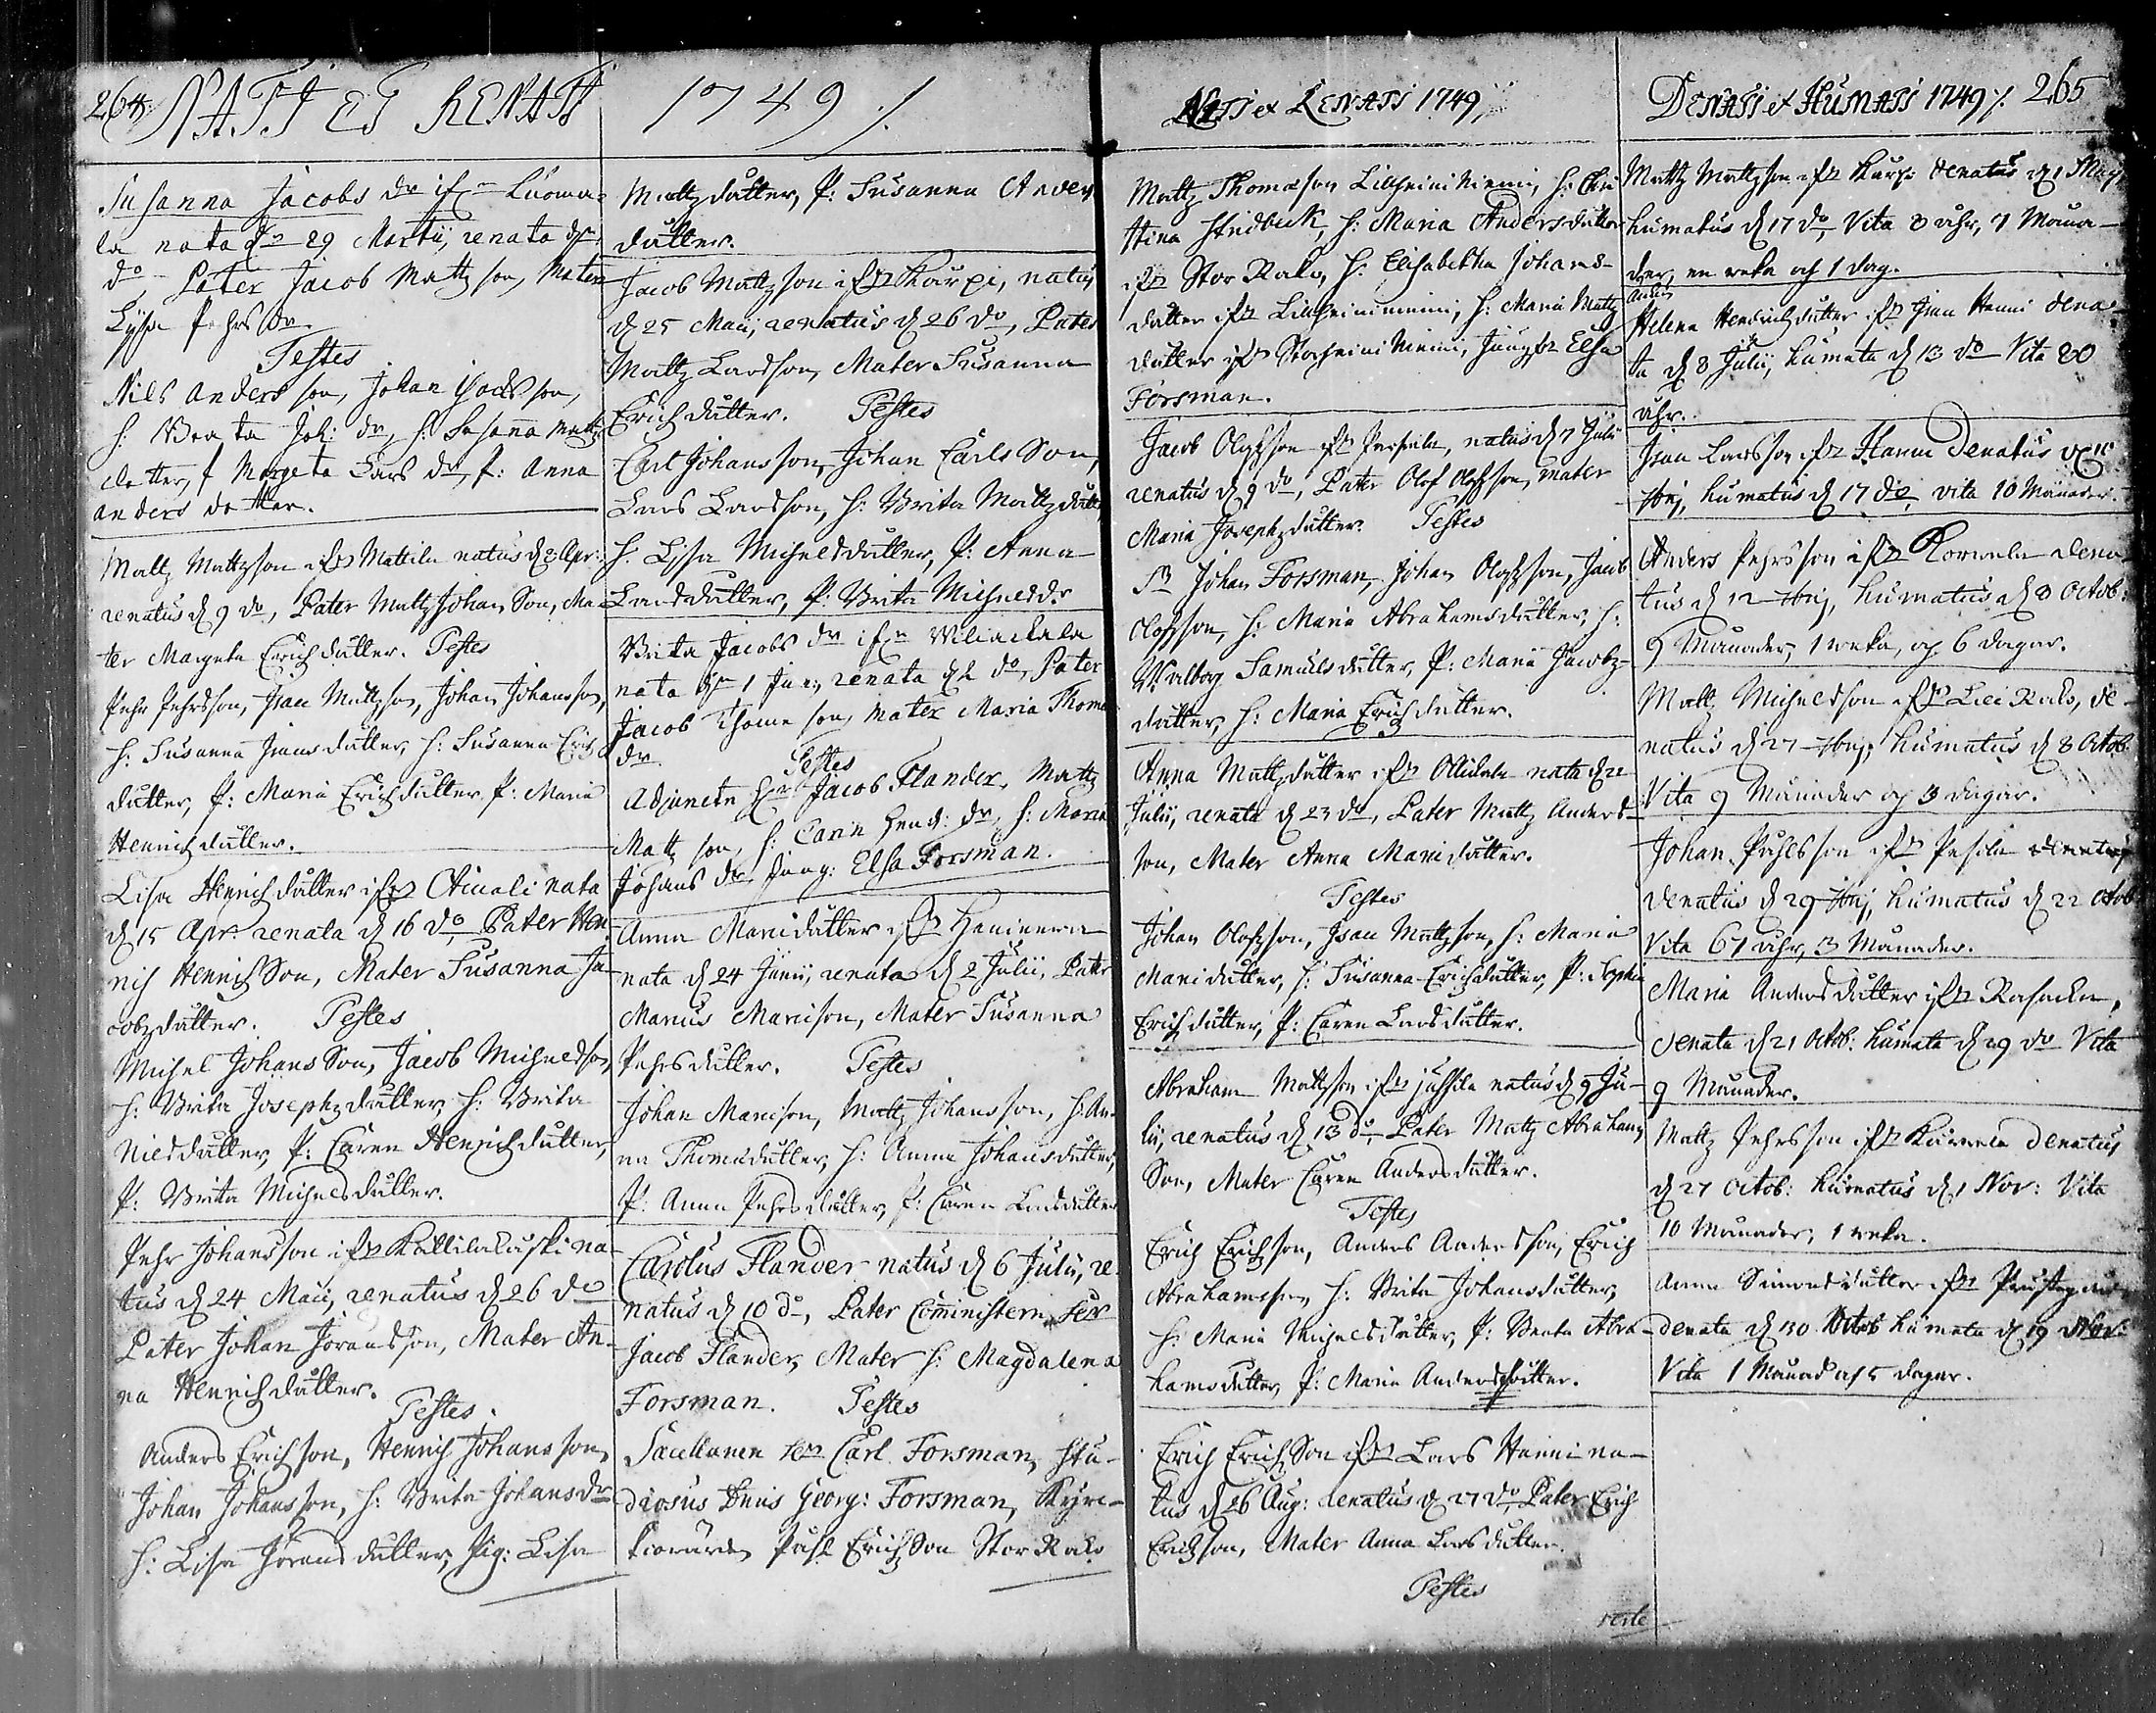 264. NATI ET RENATI
Susanna Jacobs dr ifrn Luoma-
la nata dn 29 Martii, renata dn
do, Pater Jacob Mattzson, Mater
Lijsa Pehrs dr.
Testes
Nils Anders son, Johan son,
h: Beata Joh: dr, h: Susanna Mattz
dotter, p Margeta Lars dr, p: Anna
anders dotter.
Mattz Mattzson ifrn Mattila natus d 8 Apr:
renatus d 9 do, Pater Mattz Johan Son, Ma-
ter Margeta Erichdutter. Testes
Pehr Pehrsson, Isaac Mattzson, Johan Johansson,
h: Susanna dutter, h: Susanna Erich
dutter, P: Maria Erichdutter, P: Maria
Henrichdutter.
Lisa Henrichdutter ifrn nata
d 15 Apr: renata d 16 do, Pater Hen-
rich Henrich Son, Mater Susanna Ja-
cobzdutter. Testes
Michel Johans Son, Jacob Michelsson,
h: Brita Josephzdutter, h: Brita
Nilsdutter, P: Caren Henrichdutter,
P: Brita Michelsdutter.
Pehr Johansson ifrn na-
tus d 24 Maii, renatus d 26 do
Pater Johan Joransson, Mater An-
na Henrichdutter.
Testes.
Anders Erichson, Henrich Johansson,
Johan Johansson, h: Brita Johansdr
h: Lisa Joransdutter, Pig: Lisa
1749 /.
Mattzdutter, P: Susanna Anders
dutter.
Jacob Mattzson ifrn Karpi, natus
d 25 Maii, renatus d 26 do, Pater
Mattz Larsson, Mater Susanna
Erichdutter. Testes
Carl Johansson, Johan Carls Son,
Lars Larsson, h: Brita Mattzdutter,
h. Lisa Michelsdutter, P: Anna
Larsdutter, P: Brita Michelsdr
Brita Jacobs dr ifrn Wiliackala
nata dn 1 Jun:, renata d 2 do, Pater
Jacob Thomeson, Mater Maria Thome
dr. Testes
Adjuncten Hr Jacob Flander, Mattz
Mattz son, h: Carin Hend: dr, h: Maria
Johans dr Jung: Elsa Forsman.
Anna Maridutter ifrn
nata d 24 Junii, renata d 2 Julii, Pater
Marcus Marcison, Mater Susanna
Pehrsdutter. Testes
Johan Marcison, Mattz Johansson, h: An-
na Thomedutter, h: Anna Johansdutter,
P: Anna Pehrsdutter, P: Caren Larsdutter
Carolus Flander natus d 6 Julii, re-
natus d 10 do, Pater Comministern Herr
Jacob Flander, Mater h: Magdalena
Forsman. Testes
Sacellanen Herr Carl Forsman, Stu-
diosus Dnus Georg: Forsman, Kyrc-
kiowärden Påhl Erichson Stor Kako
Nati et Renati 1749
Mattz Thomæson Lillheininiemi, h: Chri
stina Heidbeck, h: Maria Andersdutter
ifrn Stor Kako, h: Elisabetha Johans-
dutter ifrn Lillheininiemi, h: Maria Mattz
dutter ifrn Storheininiemi, Jungfr Elsa
Forsman.
Jacob Olofzson ifrn natus d 7 Julii
renatus d 9 do, Pater Olof Olofzson, Mater
Maria Josephzdutter. Testes
Sr Johan Forsman, Johan Olofzson, Jacob
Olofzson, h: Maria Abrahamsdutter, h:
Walborg Samuelsdutter, P: Maria Jacobz-
dutter, h: Maria Erichdutter.
Anna Mattzdutter ifrn nata d 22
Julii, renata d 23 do, Pater Mattz Anders-
son, Mater Anna Maridutter.
Testes
Johan Olofzson, Isaac Mattzson, h: Maria
Maridutter, h: Susanna Erichdutter, P: Sophia
Erichdutter, P: Caren Larsdutter.
Abraham Mattzson ifrn Jussila natus d 9 Ju-
lii, renatus d 13 do, Pater Mattz Abrahams
Son, Mater Caren Andersdutter.
Testes
Erich Erichson, Anders Andersson, Erich
Abrahamsson, h: Brita Johansdutter,
h: Maria Michelsdutter, P: Beata Abra-
hamsdutter, P: Maria Andersdutter.
Erich Erich Son ifrn Lars Hanni na-
tus d 26 Aug: renatus d 27 do Pater Erich
Erichson, Mater Anna Larsdutter.
Testes
verte
Denati et Humati 1749 /. 265
Mattz Mattzson ifrn Karpi denatus d 1 Maij
humatus d 17 do, Vita 8 åhr, 7 Måna-
der, en weka och 1 dag.
Enkan
Helena Hendrichdutter ifrn Isac Hanni dena-
ta d 8 Julii, humata d 13 do Vita 80
åhr.
Isac Larsson ifrn Hanni Denatus d 10
7brij, humatus d 17 do, vita 10 Månader.
Anders Pehrsson ifrn Korwela dena
tus d 12 7brij, humatus d 8 Octob:
9 Månader, 1 weka, och 6 dagar.
Mattz Michelsson ifrn Lill Kako, de-
natus d 27 7brij, humatus d 8 Octob:
Vita 9 Månader och 3 dagar.
Johan Påhlsson ifrn
denatus d 29 7brij, humatus d 22 Octob
Vita 67 åhr, 3 Månader.
Maria Andersdutter ifrn
denata d 21 Octob: humata d 29 do Vita
9 Månader.
Mattz Pehrsson ifrn denatus
d 27 Octob: humatus d 1 Nov: Vita
10 Månader, 1 weka.
Anna Simonsdutter ifrn
denata d 30 Octob humata d 19 Nov:
Vita 1 Månad och 5 dagar.